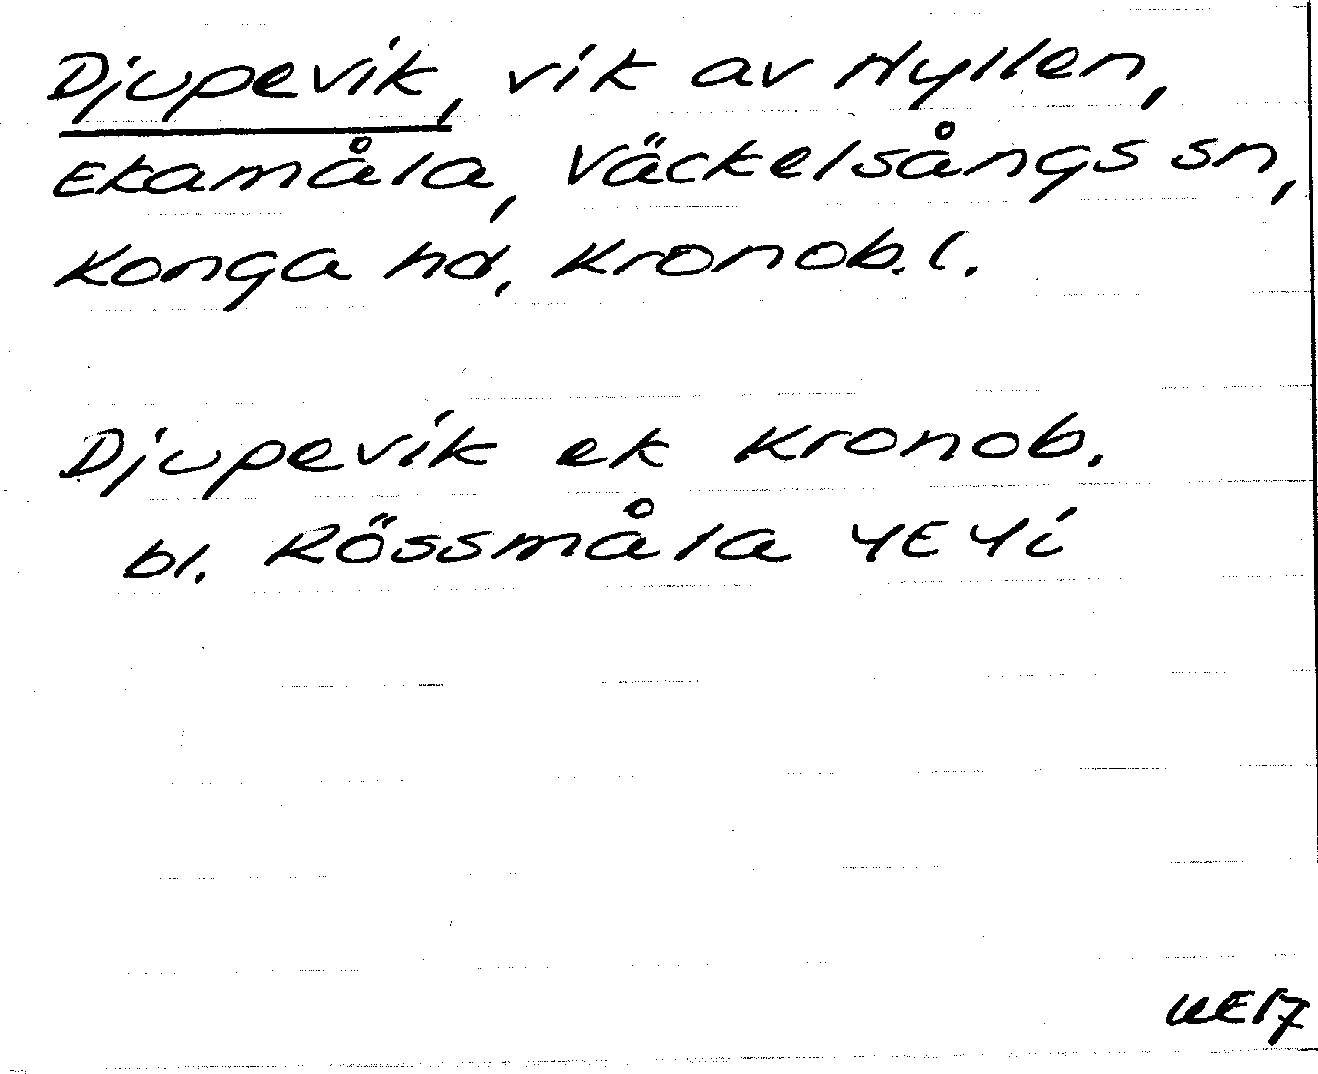 Djupevik, vik av Hyllen,
Ekamåla, Väckelsångs sn,
Konga hd, Kronob. l.
Djupevik ek Kronob.
bl. Rössmåla 4E4i
UE17